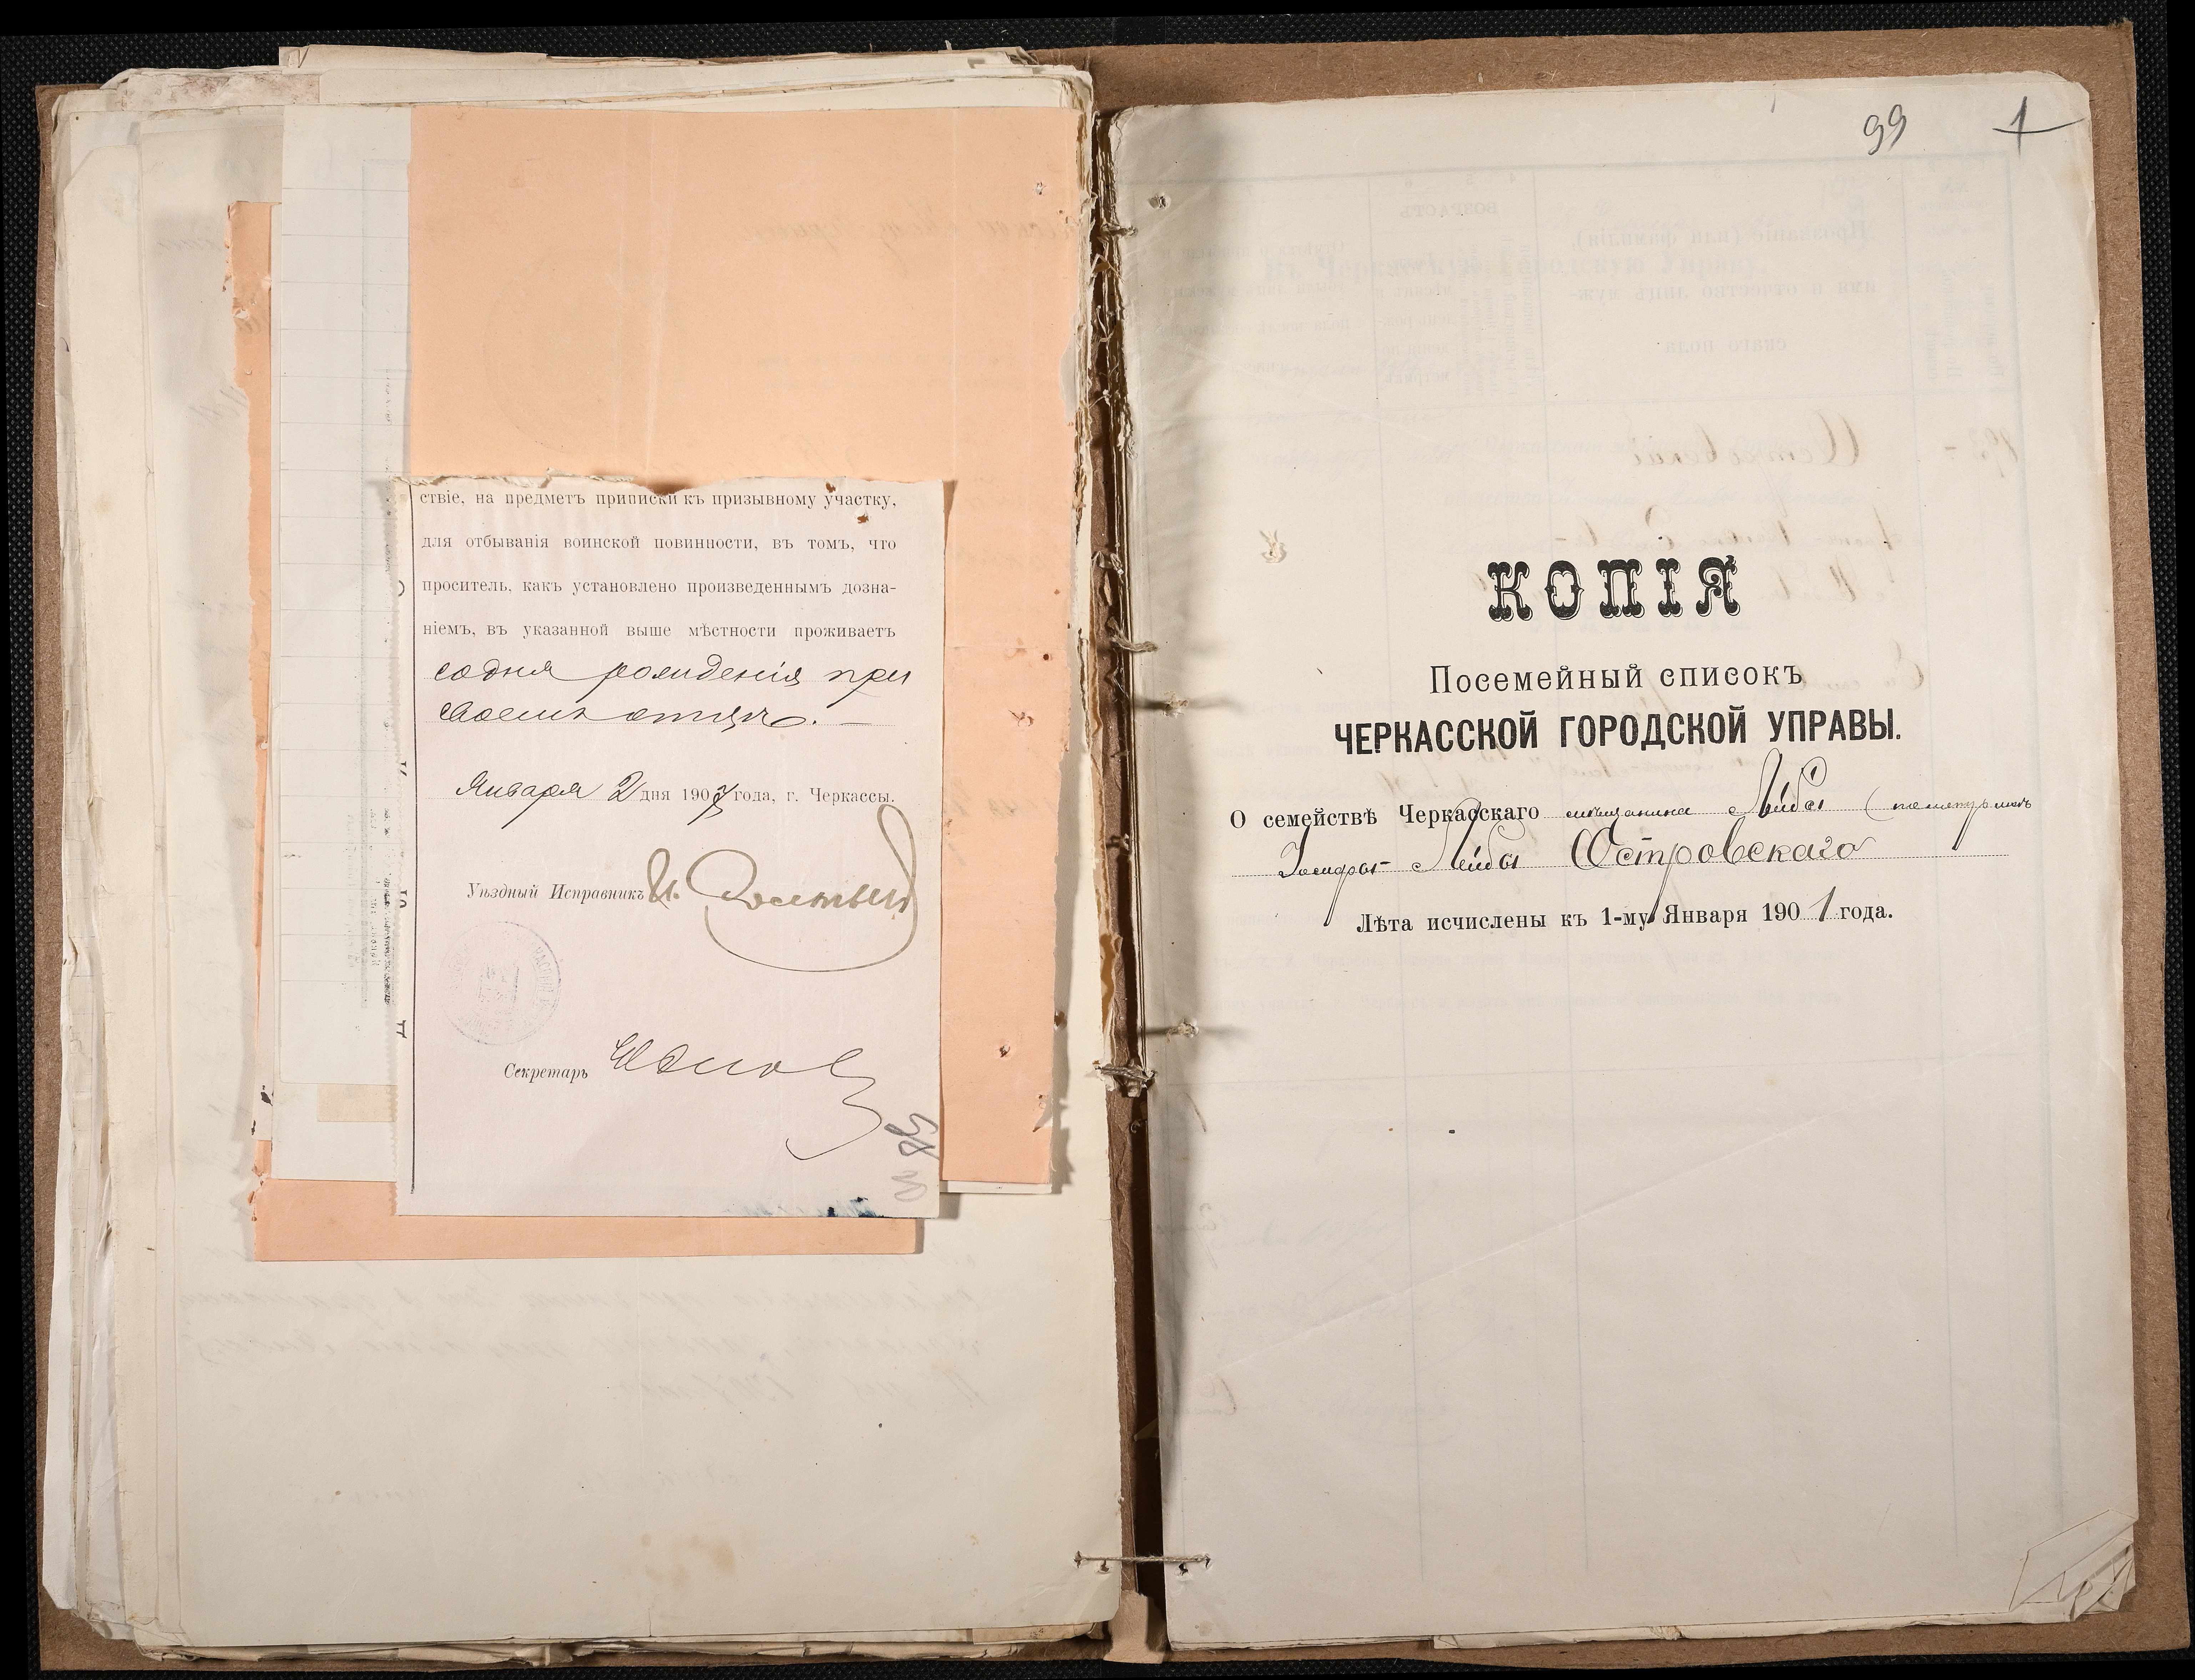 ствіе, на предметъ приписки къ призывному участку,
для отбыванія воинской повинности, въ томъ, что
проситель, какъ установлено произведеннымъ дозна-
ніемъ, въ указанной выше мѣстности проживаетъ
со дня рожденія при
своемъ отцѣ.
Января 2 дня 1907 года, г. Черкассы.
Уѣздный Исправникъ
Секретарь
98
99 1
КОПІЯ
Посемейный списокъ
ЧЕРКАССКОЙ ГОРОДСКОЙ УПРАВЫ.
О семействѣ Черкасскаго мѣщанина Лейбы
Лейбы Островскаго
Лѣта исчислены къ 1-му Января 1901 года.